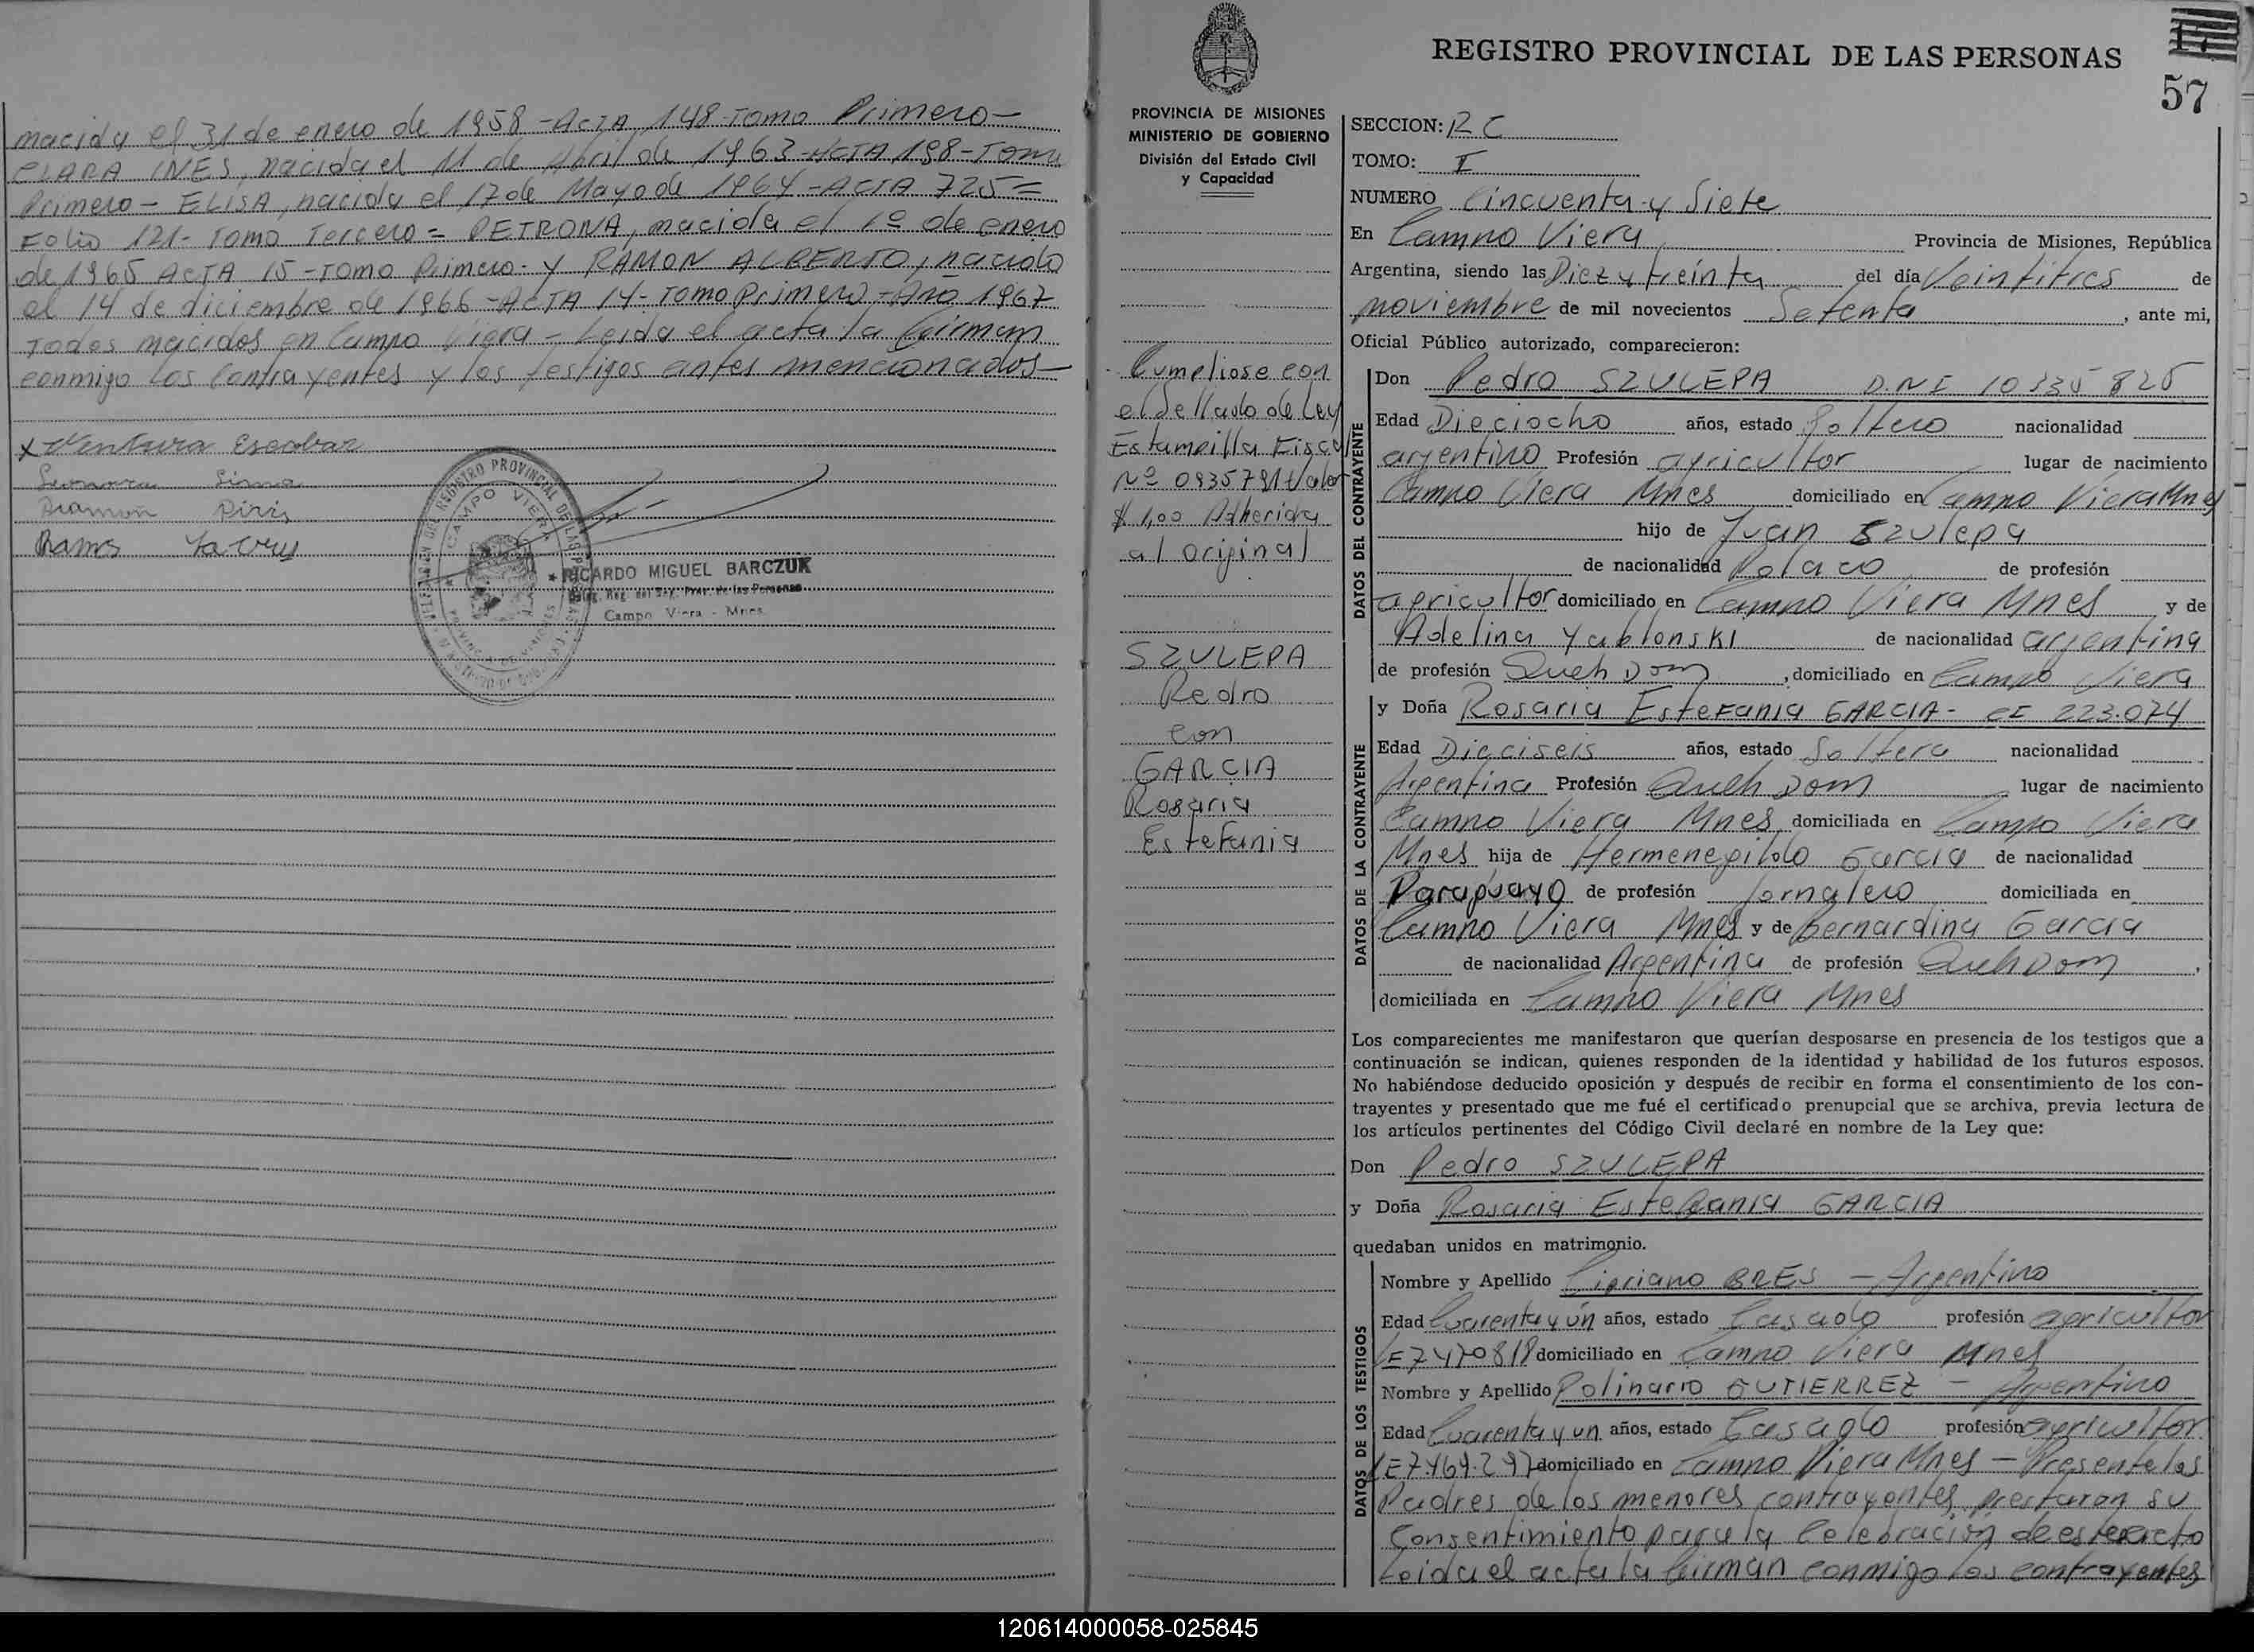 nacida el 31 de enero de 1958 - ACTA 148 - Tomo Primero -
CLARA INES, nacida el 11 de Abril de 1963 - ACTA 198 - Tomo
Primero - ELISA, nacida el 17 de Mayo de 1964 - ACTA 725 =
Folio 121 - Tomo Tercero = PETRONA, nacida el 1º de enero
de 1965 ACTA 15 - Tomo Primero - y RAMON ALBERTO, nacido
el 14 de diciembre de 1966 - ACTA 14 - Tomo Primero - Año 1967
Todos nacidos en Campo Viera - Leida el acta la firman
conmigo los contrayentes y los testigos antes mencionados -
x Ventura Escobar
Ramon
REGISTRO PROVINCIAL DE LAS
CAMPO VIERA
RICARDO MIGUEL BARCZUK
Deleg. Reg. del Reg. Prov. de las Personas
Campo Viera - Mnes.
PROVINCIA DE MISIONES
MINISTERIO DE GOBIERNO
División del Estado Civil
y Capacidad
Cumpliose con
el Sellado de Ley
Estampilla Fiscal
Nº 0935791 Valor
$ 1,00 Adherida
al original
SZULEPA
Pedro
con
GARCIA
Rosaria
Estefania
REGISTRO PROVINCIAL DE LAS PERSONAS
57
SECCION: RC
TOMO: I
NUMERO Cincuenta y Siete
En Campo Viera, Provincia de Misiones, República
Argentina, siendo las Diez y treinta del día Veintitres de
noviembre de mil novecientos Setenta, ante mi,
Oficial Público autorizado, comparecieron:
DATOS DEL CONTRAYENTE
Don Pedro SZULEPA D.N.I 10.335.825
Edad Dieciocho años, estado Soltero nacionalidad
argentino Profesión agricultor lugar de nacimiento
Campo Viera Mnes domiciliado en Campo Viera Mnes
hijo de Juan SZulepa
de nacionalidad Polaco de profesión
agricultor domiciliado en Campo Viera Mnes y de
Adelina Yablonski de nacionalidad argentina
de profesión Queh Dom, domiciliado en Campo Viera
DATOS DE LA CONTRAYENTE
y Doña Rosaria Estefania GARCIA - CI 223.074
Edad Dieciseis años, estado Soltera nacionalidad
Argentina Profesión Queh Dom lugar de nacimiento
Campo Viera Mnes domiciliada en Campo Viera
Mnes hija de Hermenegildo Garcia de nacionalidad
Paraguayo de profesión Jornalero domiciliada en
Campo Viera Mnes y de Bernardina Garcia
de nacionalidad Argentina de profesión Queh Dom,
domiciliada en Campo Viera Mnes
Los comparecientes me manifestaron que querían desposarse en presencia de los testigos que a
continuación se indican, quienes responden de la identidad y habilidad de los futuros esposos.
No habiéndose deducido oposición y después de recibir en forma el consentimiento de los con-
trayentes y presentado que me fué el certificado prenupcial que se archiva, previa lectura de
los artículos pertinentes del Código Civil declaré en nombre de la Ley que:
Don Pedro SZULEPA
y Doña Rosaria Estefania GARCIA
quedaban unidos en matrimonio.
DATOS DE LOS TESTIGOS
Nombre y Apellido Cipriano BRES - Argentino
Edad Cuarenta y un años, estado Casado profesión agricultor
LE 7470818 domiciliado en Campo Viera Mnes
Nombre y Apellido Polinario GUTIERREZ - Argentino
Edad Cuarenta y un años, estado Casado profesión agricultor
LE 7.469.297 domiciliado en Campo Viera Mnes - Presente los
Padres de los menores contrayentes prestaron su
Consentimiento para la Celebración de este acto
Leida el acta la firman conmigo los contrayentes
120614000058-025845